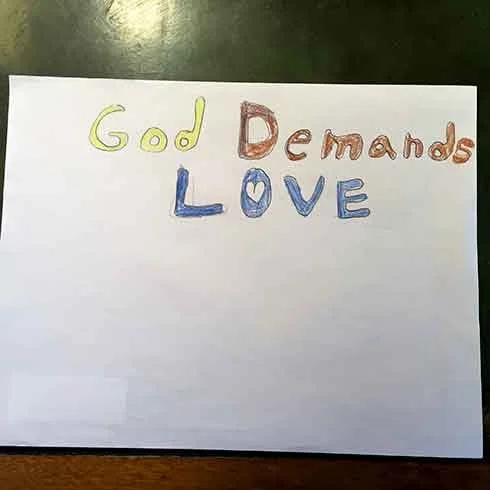 God Demands
LOVE